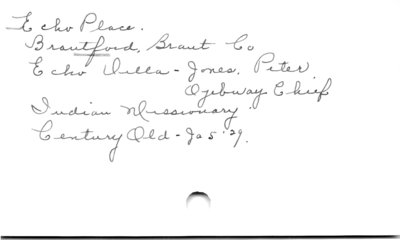 Echo Place.
Brantford, Brant Co
Echo Villa - Jones, Peter,
Ojebway Chief
Indian Missionary.
Century Old - Ja 5 '29.